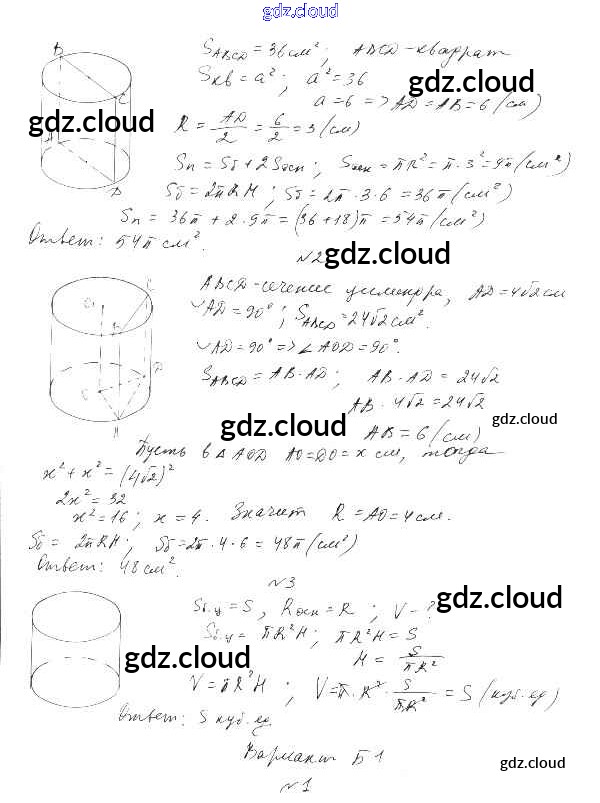 gdz.cloud
S_ABCD = 36 см²; ABCD - квадрат
S_кв = a²; a² = 36
gdz.cloud
a = 6 => AD = AB = 6 (см)
gdz.cloud
R = AD/2 = 6/2 = 3 (см)
Sп = Sб + 2Sосн; Sосн = πR² = π·3² = 9π (см²)
Sб = 2πRH; Sб = 2π·3·6 = 36π (см²)
Sп = 36π + 2·9π = (36+18)π = 54π (см²)
Ответ: 54π см².
N2
gdz.cloud
ABCD - сечение цилиндра, AD = 4√2 см
◡AD = 90°; S_ABCD = 24√2 см².
◡AD = 90° => ∠AOD = 90°.
S_ABCD = AB·AD; AB·AD = 24√2
AB·4√2 = 24√2
gdz.cloud
gdz.cloud
AB = 6 (см)
Пусть в △AOD AO = DO = x см, тогда
x² + x² = (4√2)²
2x² = 32
x² = 16; x = 4. Значит R = AO = 4 см.
Sб = 2πRH; Sб = 2π·4·6 = 48π (см²)
Ответ: 48 см².
N3
gdz.cloud
Sб.у = S, Rосн = R; V - ?
Sб.у = πR²H; πR²H = S
gdz.cloud
H = S/πR²
V = πR²H; V = π·R²·S/πR² = S (куб. ед)
Ответ: S куб. ед
Вариант Б1
gdz.cloud
N1